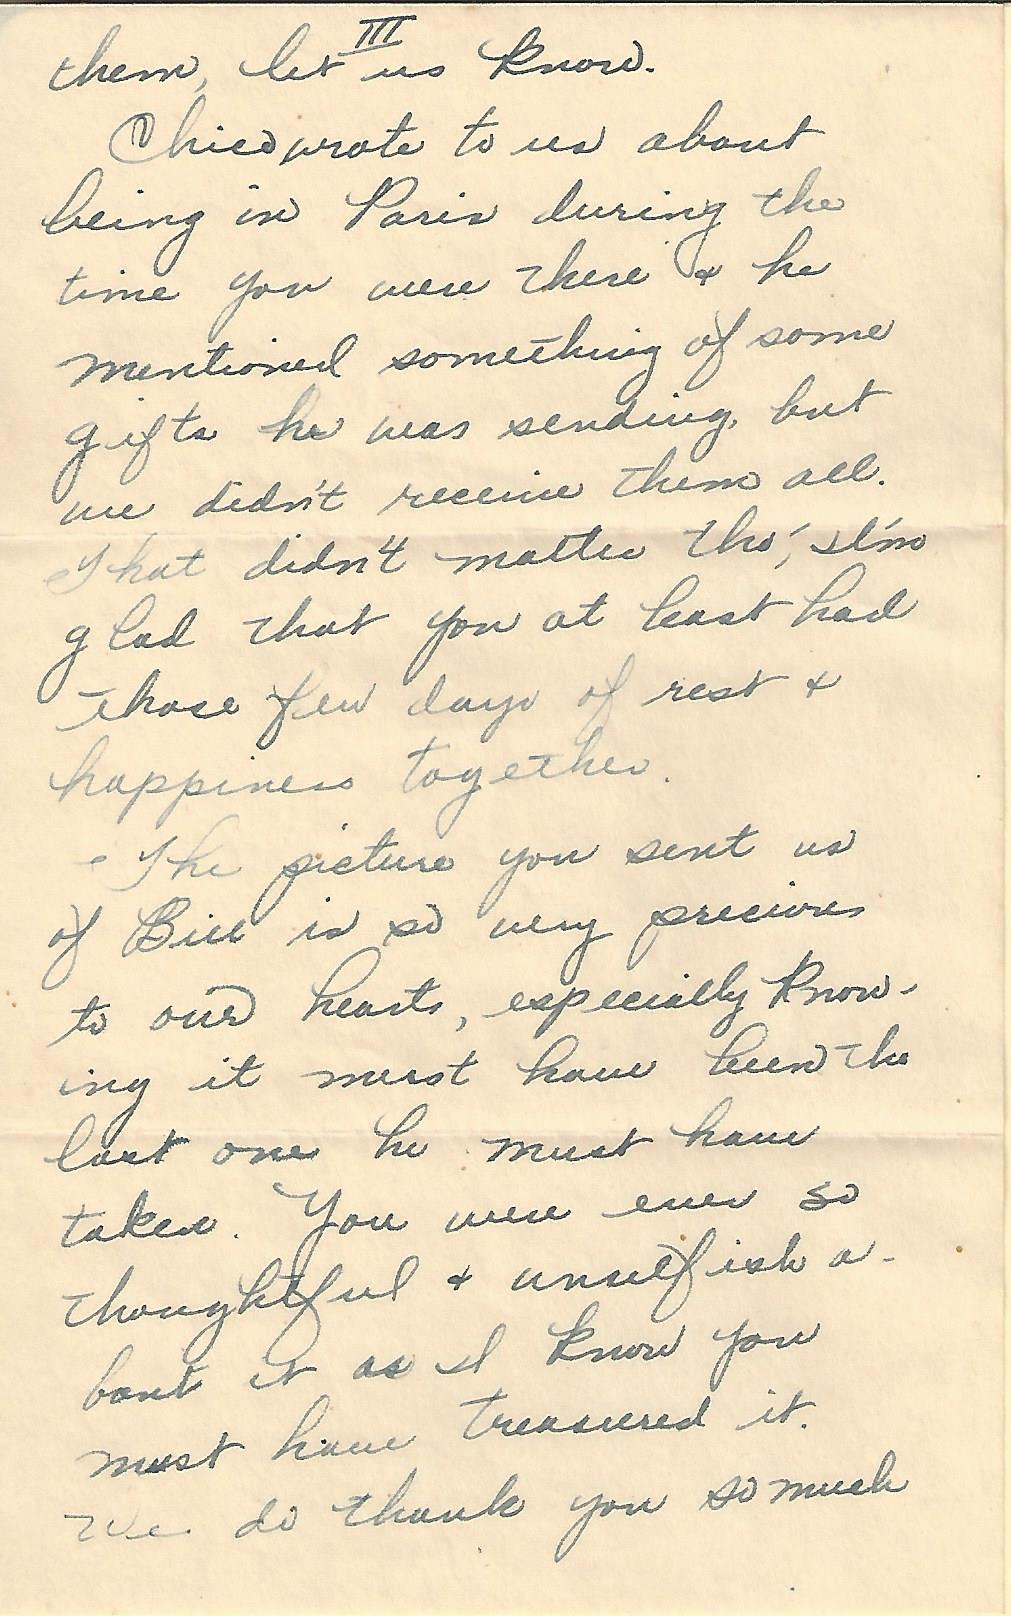 III
them, let us know.
Chico wrote to us about
being in Paris during the
time you were there & he
mentioned something of some
gifts he was sending, but
we didn't receive them all.
That didn't matter tho', I'm
glad that you at least had
those few days of rest &
happiness together.
The picture you sent us
of Bill is so very precious
to our hearts, especially know-
ing it must have been the
last one he must have
taken. You were ever so
thoughtful & unselfish a-
bout it as I know you
must have treasured it.
We do thank you so much